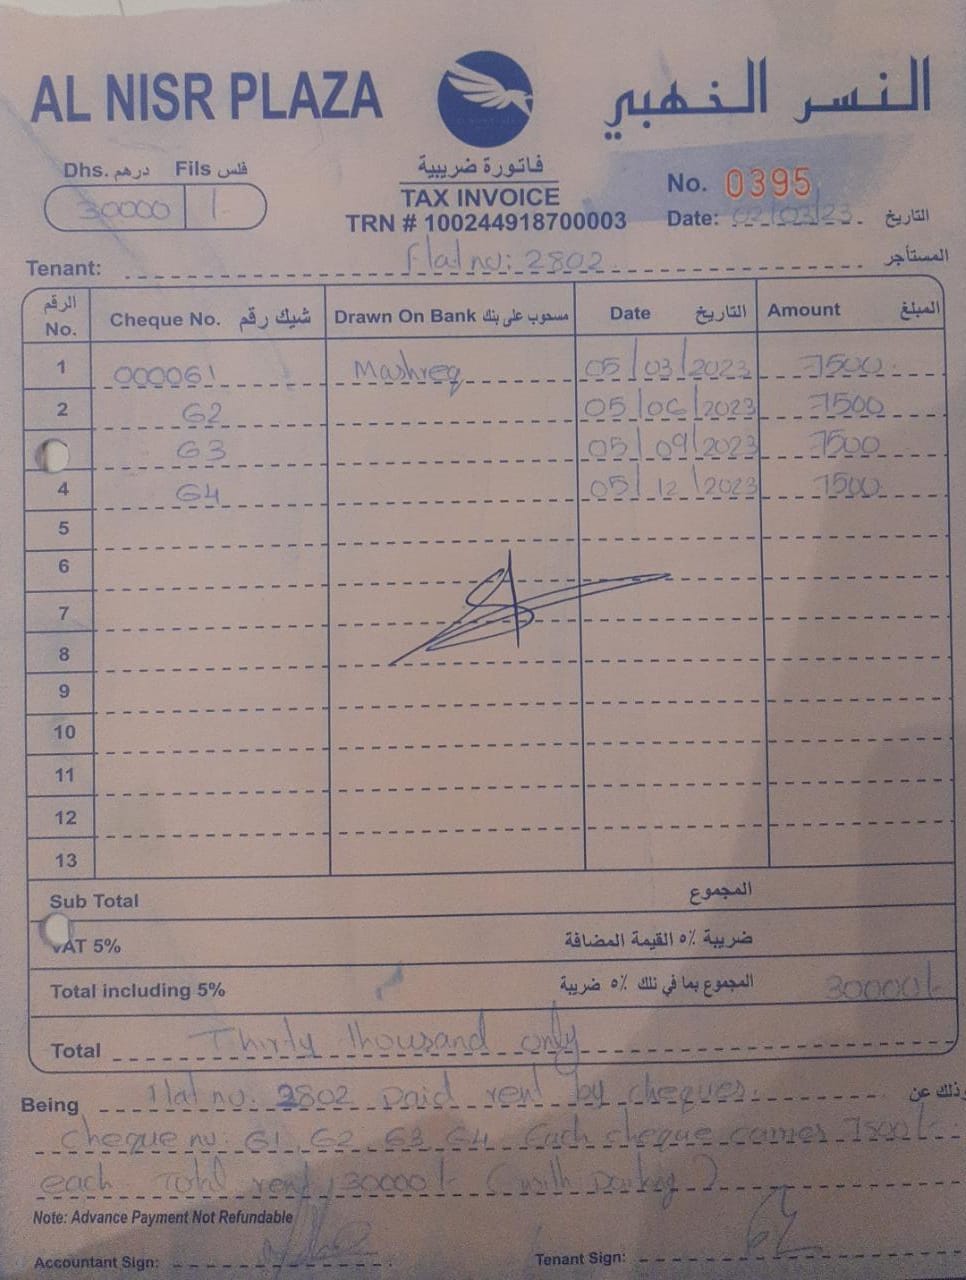 AL NISR PLAZA
النسر الذهبي
Dhs. درهم Fils فلس
30000 /-
فاتورة ضريبية
TAX INVOICE
TRN # 100244918700003
No. 0395
Date: 02/03/23 التاريخ
Tenant: Flat no: 2802 المستأجر
الرقم No. Cheque No. شيك رقم Drawn On Bank مسحوب على بنك Date التاريخ Amount المبلغ
1 000061 Mashreq 05/03/2023 7500
2 62 05/06/2023 7500
63 05/09/2023 7500
4 64 05/12/2023 7500
5
6
7
8
9
10
11
12
13
Sub Total المجموع
VAT 5% ضريبة ٥٪ القيمة المضافة
Total including 5% المجموع بما في ذلك ٥٪ ضريبة 30000/-
Total Thirty thousand only
Being Flat no. 2802 paid rent by cheques. وذلك عن
Cheque no: 61, 62, 63, 64 Each cheque carries 7500/-
each Total rent 30000/- (with Parking)
Note: Advance Payment Not Refundable
Accountant Sign: Tenant Sign: